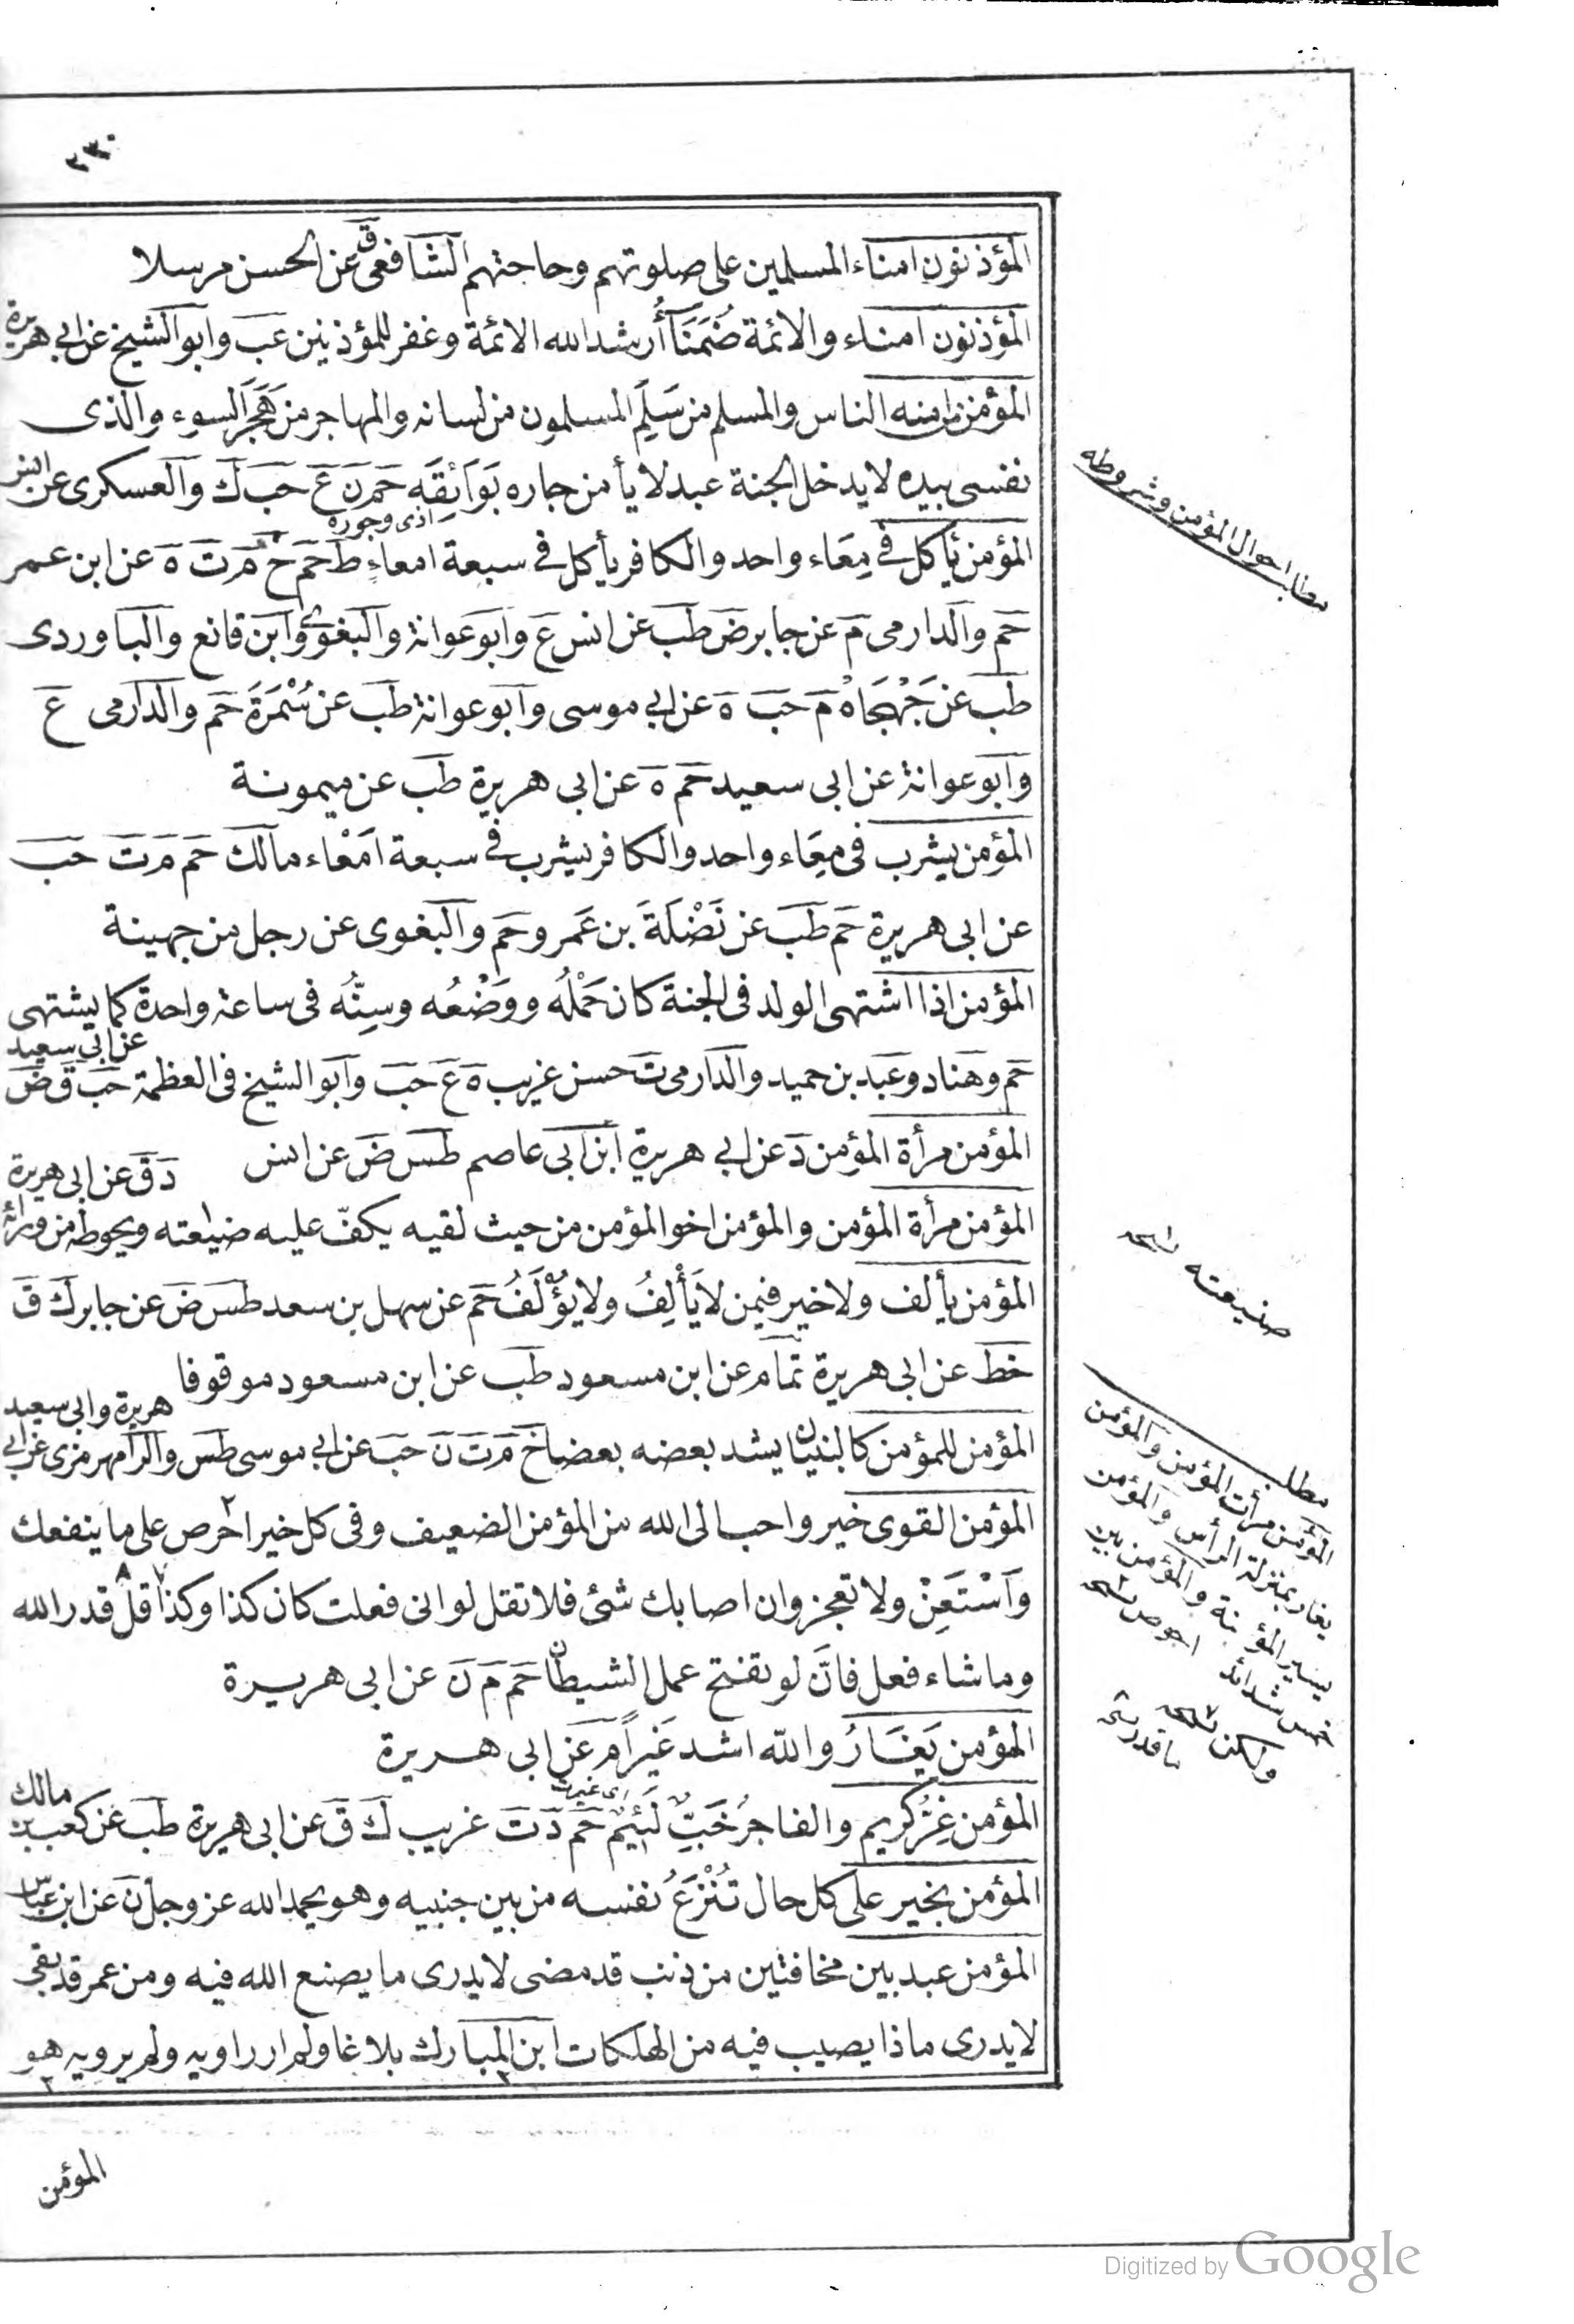 ٢٣٠
المؤذنون امناء المسلمين على صلوتهم وحاجتهم الشافعى ق عن الحسن مرسلا
المؤذنون امناء والائمة ضُمَنَآءُ أرشد الله الائمة وغفر للمؤذنين عب وابو الشيخ عن ابى هريرة
المؤمن من امنه الناس والمسلم من سَلِمَ المسلمون من لسانه والمهاجر من هَجَرَ السوء والذى
نفسى بيده لا يدخل الجنة عبد لا يأمن جاره بَوَآئِقَه حم ن ع حب ك والعسكرى عن انس
اذى وجوره
المؤمن يأكل فى مِعَاء واحد والكافر يأكل فى سبعة امعاءٍ ط حم خ م ت ه عن ابن عمر
حم والدارمى م عن جابر ض طب عن انس ع وابو عوانة والبغوى وابن قانع والباوردى
طب عن جَهْجَاهْ م حب ه عن ابى موسى وابو عوانة طب عن سَمُرَةَ حم والدارمى ع
وابو عوانة عن ابى سعيد حم ه عن ابى هريرة طب عن ميمونة
المؤمن يشرب فى مِعَاء واحد والكافر يشرب فى سبعة اَمْعَاء مالك حم م ت حب
عن ابى هريرة حم طب عن نَضْلَةَ بن عَمرو حم والبغوى عن رجل من جهينة
المؤمن اذا اشتهى الولد فى الجنة كان حَمْلُه ووَضْعُه وسِنُّه فى ساعة واحدة كما يشتهى
عن ابى سعيد
حم وهناد وعبد بن حميد والدارمى ت حسن غريب ه ع حب وابو الشيخ فى العظمة حب ق ض
المؤمن مرأة المؤمن د عن ابى هريرة ابن ابى عاصم طس ض عن انس
د ق عن ابى هريرة
المؤمن مرأة المؤمن والمؤمن اخو المؤمن من حيث لقيه يكفّ عليه ضيعته ويحوطه من ورائه
المؤمن يألف ولا خير فيمن لا يَأْلِفُ ولا يُؤْلَفُ حم عن سهل بن سعد طس ض عن جابر ك ق
خط عن ابى هريرة تمام عن ابن مسعود طب عن ابن مسعود موقوفا
هريرة وابى سعيد
المؤمن للمؤمن كالبنيان يشد بعضه بعضا خ م ت ن حب عن ابى موسى طس والرامهرمزى عن ابى
المؤمن القوى خير واحب الى الله من المؤمن الضعيف وفى كل خير احرص على ما ينفعك
وَاسْتَعِنْ ولا تعجز وان اصابك شئ فلا تقل لو انى فعلت كان كذا وكذا قل قدر الله
وما شاء فعل فانّ لو تفتح عمل الشيطان حم م ن عن ابى هريرة
المؤمن يَغَارُ والله اشد غَيْراً م عن ابى هريرة
المؤمن غِرٌّ كريم والفاجرُ خَبٌّ لَئِيمٌ حم د ت غريب ك ق عن ابى هريرة طب عن كعب بن مالك
المؤمن بخير على كل حال تُنْزَعُ نفسه من بين جنبيه وهو يحمد الله عز وجل ن عن ابن عباس
المؤمن عبد بين مخافتين من ذنب قد مضى لا يدرى ما يصنع الله فيه ومن عمر قد بقى
لا يدرى ماذا يصيب فيه من الهلكات ابن المبارك بلاغا ولم ار راويه ولم يرويه هو
المؤمن
مطلب احوال المؤمن وشروطه
ضيعته نسخه
مطلب
المؤمن مرأت المؤمن والمؤمن
بمنزلة الرأس والمؤمن
يغار
يسير المؤنة والمؤمن بين
خمس شدائد
احرص نسخه
ولكن نسخه
Digitized by Google